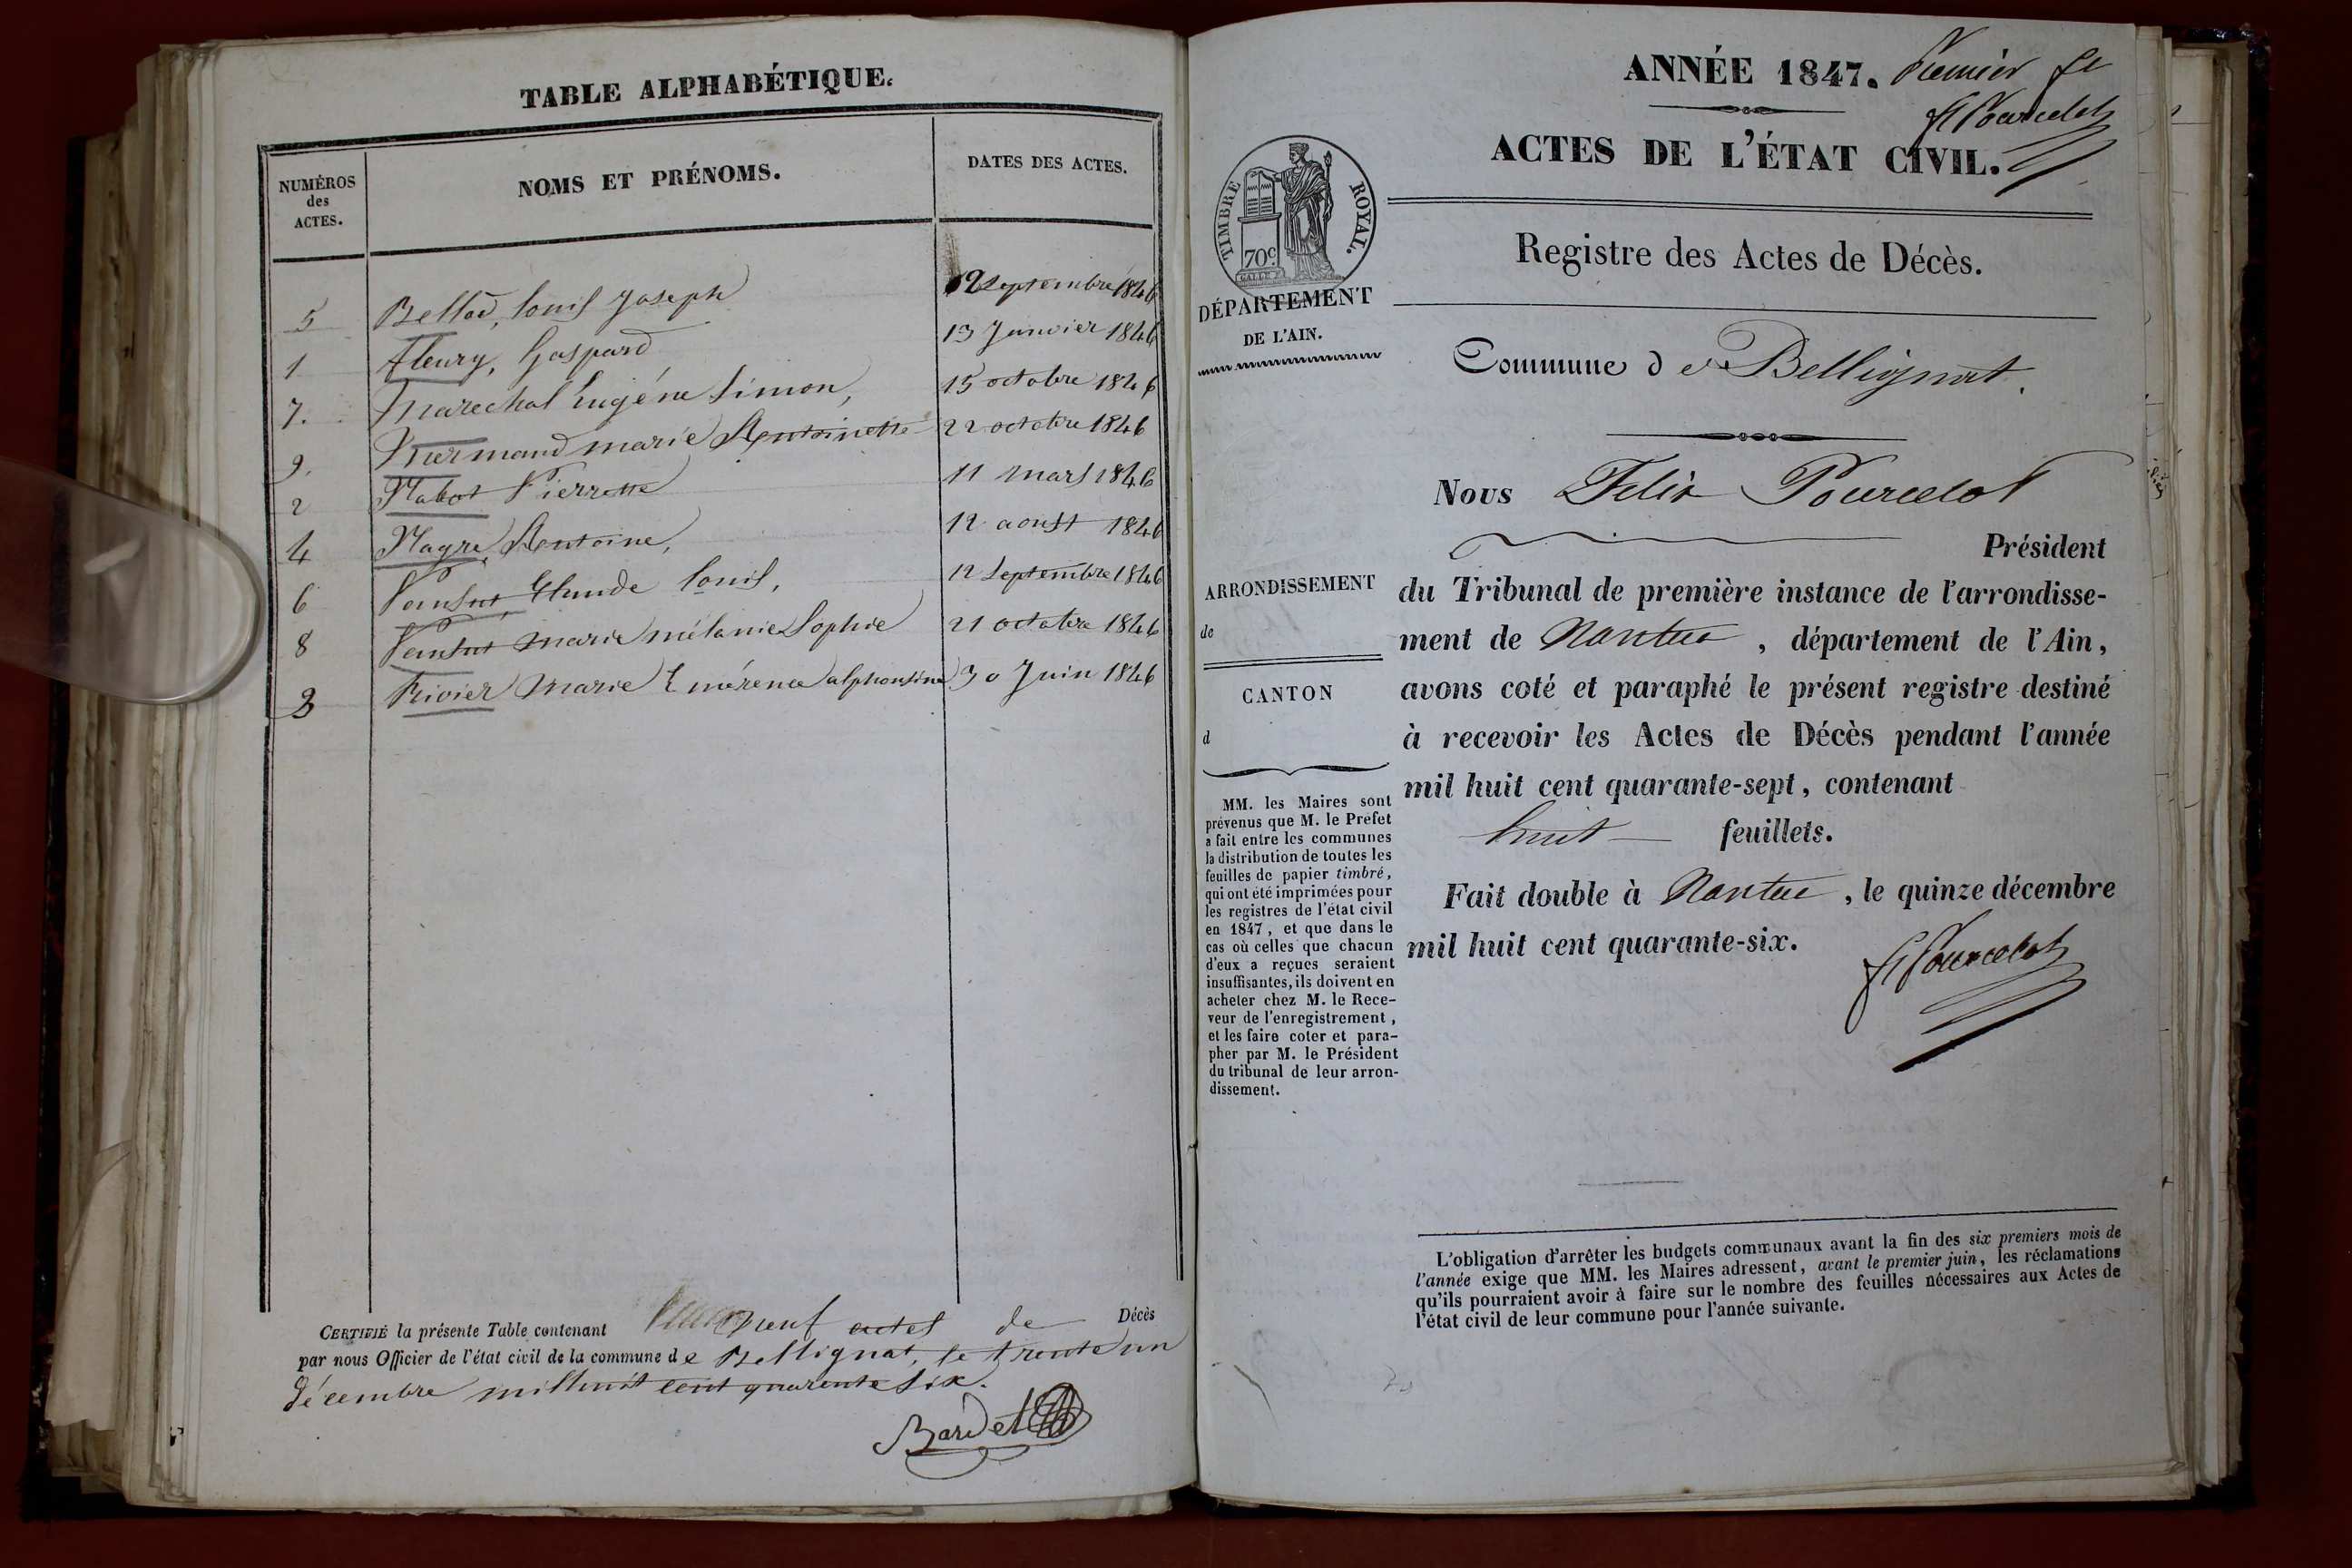 TABLE ALPHABÉTIQUE.
NUMÉROS des ACTES.
NOMS ET PRÉNOMS.
DATES DES ACTES.
5 Bellod, louis Joseph 12 Septembre 1846
1 fleury, Gaspard 13 Janvier 1846
7. Marechal Eugéne Simon, 15 octobre 1846
9. marie Antoinette 22 octobre 1846
2 Nabot Pierrette 11 mars 1846
4 Antoine, 12 aoust 1846
6 Ponsut, Claude louis, 12 Septembre 1846
8 Ponsut marie mélanie Sophie 21 octobre 1846
3 Rivier Marie Emérence alphonsine 30 Juin 1846
CERTIFIÉ la présente Table contenant neuf actes de Décès
par nous Officier de l'état civil de la commune de Bellignat, le trente un
décembre mil huit cent quarente six.
Bardet
ANNÉE 1847. Premier
F Pourcelot
ACTES DE L'ÉTAT CIVIL.
TIMBRE ROYAL.
70c
Registre des Actes de Décès.
DÉPARTEMENT
DE L'AIN.
Commune de Bellignat.
Nous Felix Pourcelot
Président
ARRONDISSEMENT
de
CANTON
d
du Tribunal de première instance de l'arrondisse-
ment de Nantua, département de l'Ain,
avons coté et paraphé le présent registre destiné
à recevoir les Actes de Décès pendant l'année
mil huit cent quarante-sept, contenant
huit feuillets.
Fait double à Nantua, le quinze décembre
mil huit cent quarante-six.
F Pourcelot
MM. les Maires sont
prévenus que M. le Préfet
a fait entre les communes
la distribution de toutes les
feuilles de papier timbré,
qui ont été imprimées pour
les registres de l'état civil
en 1847, et que dans le
cas où celles que chacun
d'eux a reçues seraient
insuffisantes, ils doivent en
acheter chez M. le Rece-
veur de l'enregistrement,
et les faire coter et para-
pher par M. le Président
du tribunal de leur arron-
dissement.
L'obligation d'arrêter les budgets communaux avant la fin des six premiers mois de
l'année exige que MM. les Maires adressent, avant le premier juin, les réclamations
qu'ils pourraient avoir à faire sur le nombre des feuilles nécessaires aux Actes de
l'état civil de leur commune pour l'année suivante.